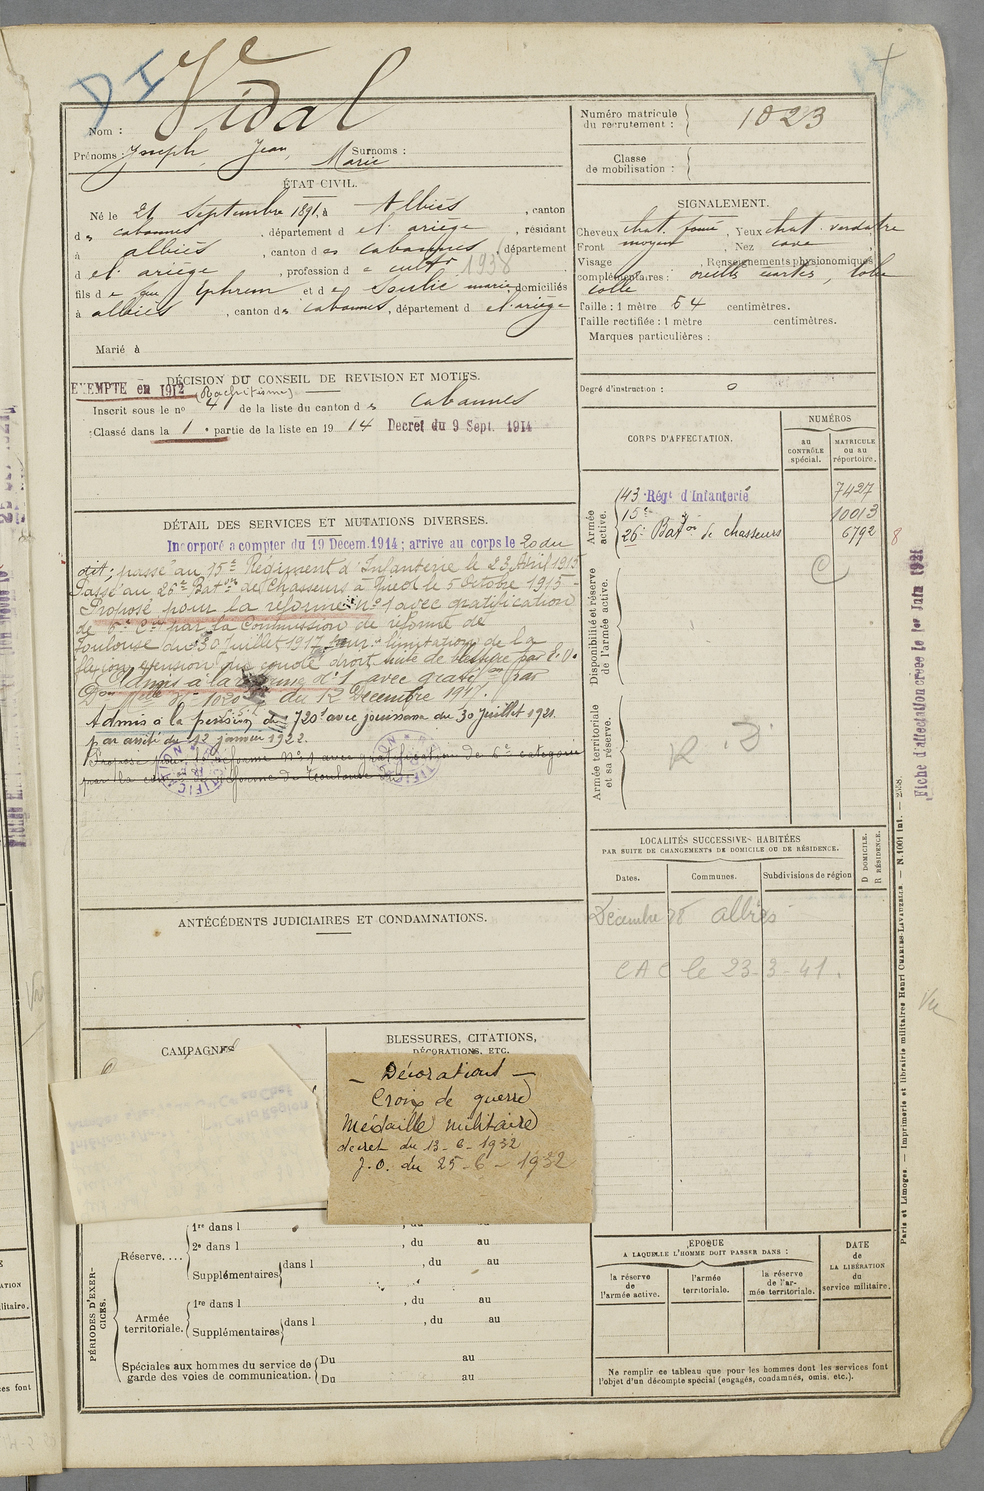 D I
Vidal
Nom :
Prénoms : Joseph, Jean, Marie Surnoms :
ÉTAT CIVIL.
Né le 21 Septembre 1891, à Albiès, canton
d es cabannes, département d e l'ariège, résidant
à albiès, canton d es cabannes, département
d e l'ariège, profession d e cultr 1938
fils d e feu Ephrem et d e Soulié marie, domiciliés
à albiès, canton d es cabannes, département d e l'ariège
Marié à
DÉCISION DU CONSEIL DE REVISION ET MOTIFS.
EXEMPTÉ en 1912 (Rachitisme)
Inscrit sous le no 4 de la liste du canton d es Cabannes
Classé dans la 1 e partie de la liste en 19 14 Decret du 9 Sept. 1914
DÉTAIL DES SERVICES ET MUTATIONS DIVERSES.
Incorporé a compter du 19 Décem. 1914 ; arrivé au corps le 20 du
dit ; passé au 15e Régiment d'Infanterie le 23 Avril 1915
Passé au 26e Baton de Chasseurs à Pied le 5 Octobre 1915 -
Proposé pour la réforme no 1 avec gratification
de 6e Cie par la Commission de réforme de
Toulouse du 30 Juillet 1917 pour : limitation de la
flexion, extension du coude droit suite de blessure par E.O.
Admis à la réforme no 1 avec gratif on par
Don Mlle No 1020 du 12 Décembre 1917.
Admis à la pension de 720f avec jouissance du 30 Juillet 1921
par arrêté du 12 janvier 1922.
Proposé pour la réforme No 1 avec gratification de 6e catégorie
par la com réforme de Toulouse du
ANTÉCÉDENTS JUDICIAIRES ET CONDAMNATIONS.
CAMPAGNES
BLESSURES, CITATIONS,
DÉCORATIONS, ETC.
- Décorations -
Croix de guerre
Médaille militaire
décret du 13-6-1932
J.O. du 25-6-1932
PÉRIODES D'EXERCICES.
Réserve....
1re dans l , du au
2e dans l , du au
Supplémentaires dans l , du au
Armée territoriale.
1re dans l , du au
Supplémentaires dans l , du au
Spéciales aux hommes du service de
garde des voies de communication.
Du au
Du au
Numéro matricule
du recrutement : 1023
Classe
de mobilisation :
SIGNALEMENT.
Cheveux chat. foncé, Yeux chat. verdatre
Front moyen, Nez cave
Visage , Renseignements physionomiques
complémentaires : oreilles écartées, lobe
collé
Taille : 1 mètre 54 centimètres.
Taille rectifiée : 1 mètre centimètres.
Marques particulières :
Degré d'instruction : 0
CORPS D'AFFECTATION.
NUMÉROS
au
CONTRÔLE
spécial.
MATRICULE
ou au
répertoire.
Armée
active.
143e Régt d'Infanterie 7427
15e 10013
26e Baton de chasseurs 6792
8
Disponibilité et réserve
de l'armée active.
Armée territoriale
et sa réserve.
R. D
LOCALITÉS SUCCESSIVES HABITÉES
PAR SUITE DE CHANGEMENTS DE DOMICILE OU DE RÉSIDENCE.
D DOMICILE.
R RÉSIDENCE.
Dates.
Communes.
Subdivisions de région
Décembre 18 albiès
CAC le 23-3-41.
ÉPOQUE
A LAQUELLE L'HOMME DOIT PASSER DANS :
la réserve
de
l'armée active.
l'armée
territoriale.
la réserve
de l'ar-
mée territoriale.
DATE
de
LA LIBÉRATION
du
service militaire.
Ne remplir ce tableau que pour les hommes dont les services font
l'objet d'un décompte spécial (engagés, condamnés, omis, etc.).
Fiche d'affectation créée le 1er Juin 1921
Paris et Limoges. — Imprimerie et librairie militaires Henri CHARLES-LAVAUZELLE. — N. 1001 int. — 2558.
Vu